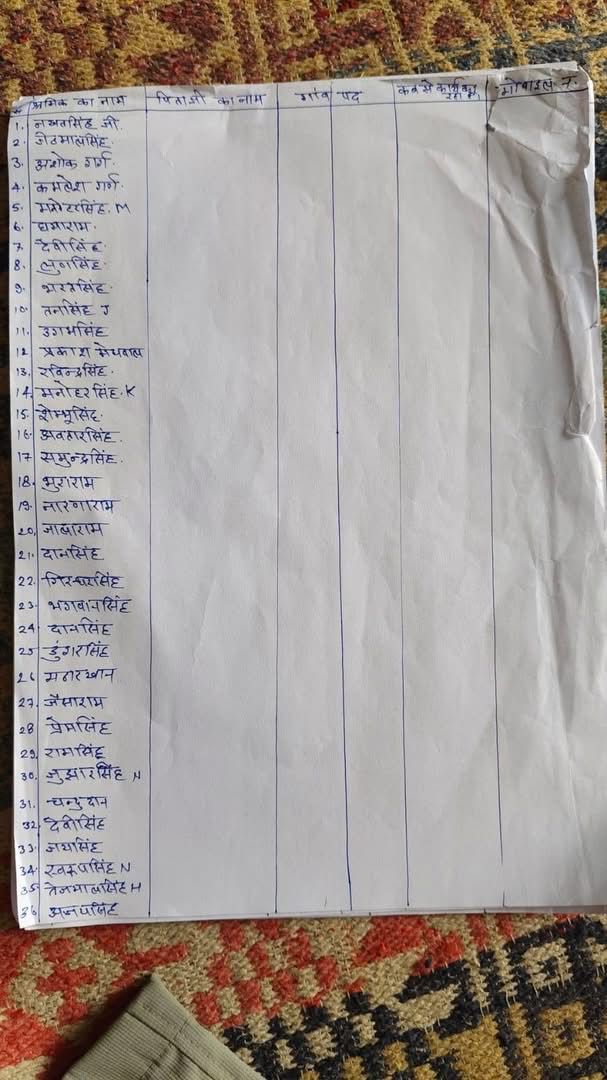 श्रमिक का नाम पिताजी का नाम गांव पद कब से कार्य कर रहा है मोबाइल न.
1. नखतसिंह जी.
2. जेठमालसिंह.
3. अशोक गर्ग.
4. कमलेश गर्ग.
5. मनोहरसिंह. M
6. घमाराम.
7. देवीसिंह.
8. लुणसिंह.
9. भरतसिंह.
10. तनसिंह J
11. उगमसिंह
12 प्रकाश मेघवाल
13. रविन्द्रसिंह.
14. मनोहरसिंह. K
15. शैम्भूसिंह.
16. अवतारसिंह.
17 समुन्द्रसिंह.
18. भुराराम
19. नारणाराम
20.
21. दानसिंह
22. गिरधरसिंह
23. भगवानसिंह
24. दानसिंह
25 डुंगरसिंह
26
27. जैसाराम
28 प्रेमसिंह
29. रामसिंह
30. जुझारसिंह N
31. चन्दुदान
32. देवीसिंह
33. जयसिंह
34. स्वरूपसिंह N
35. तेजमालसिंह H
36